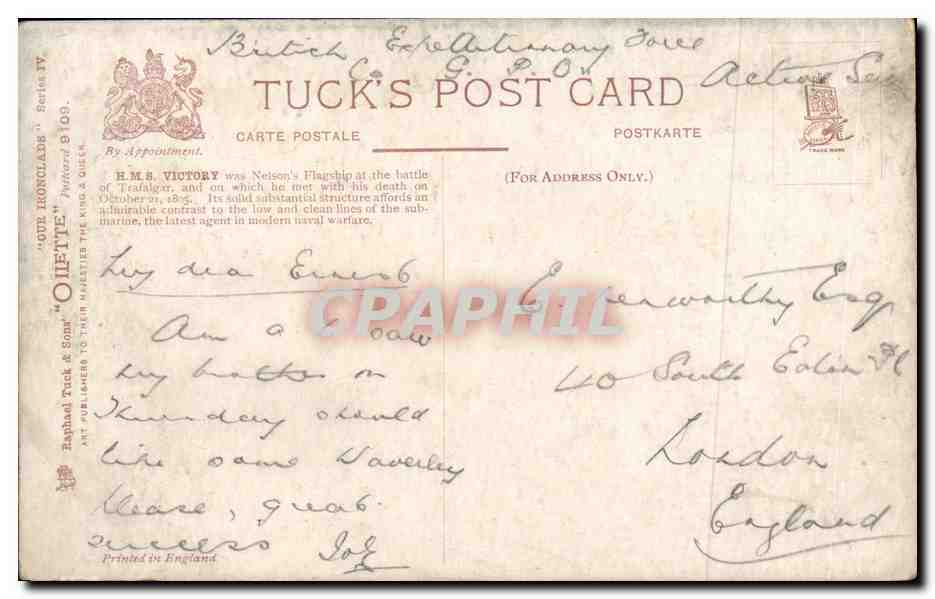 British Expeditionary Force
C/o G. P. O.
Active
TUCK'S POST CARD
CARTE POSTALE
POSTKARTE
By Appointment.
(FOR ADDRESS ONLY.)
TRADE MARK
H.M.S. VICTORY was Nelson's Flagship at the battle
of Trafalgar, and on which he met with his death on
October 21, 1805. Its solid substantial structure affords an
admirable contrast to the low and clean lines of the sub-
marine, the latest agent in modern naval warfare.
My dear Ernest
Am saw
my brother on
Thursday should
like some Waverley
please, great
success
E Esq
40 South Eaton Pl
London
England
Printed in England
"OUR IRONCLADS" Series IV.
Raphael Tuck & Sons' "OILETTE" Postcard 9109.
ART PUBLISHERS TO THEIR MAJESTIES THE KING & QUEEN.
CPAPHIL